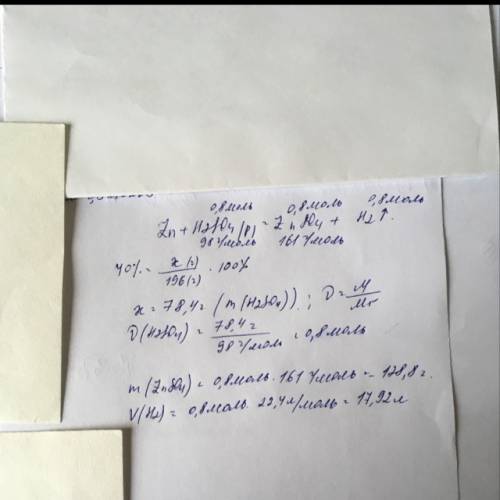 0,8моль 0,8моль 0,8моль
Zn + H2SO4 (р) = ZnSO4 + H2↑.
98 г/моль 161 г/моль
40% = x(г) / 196(г) · 100%
x = 78,4г (m(H2SO4)); D = M / Mr
D(H2SO4) = 78,4г / 98 г/моль = 0,8моль
m(ZnSO4) = 0,8моль · 161 г/моль = 128,8г.
V(H2) = 0,8моль · 22,4л/моль = 17,92л